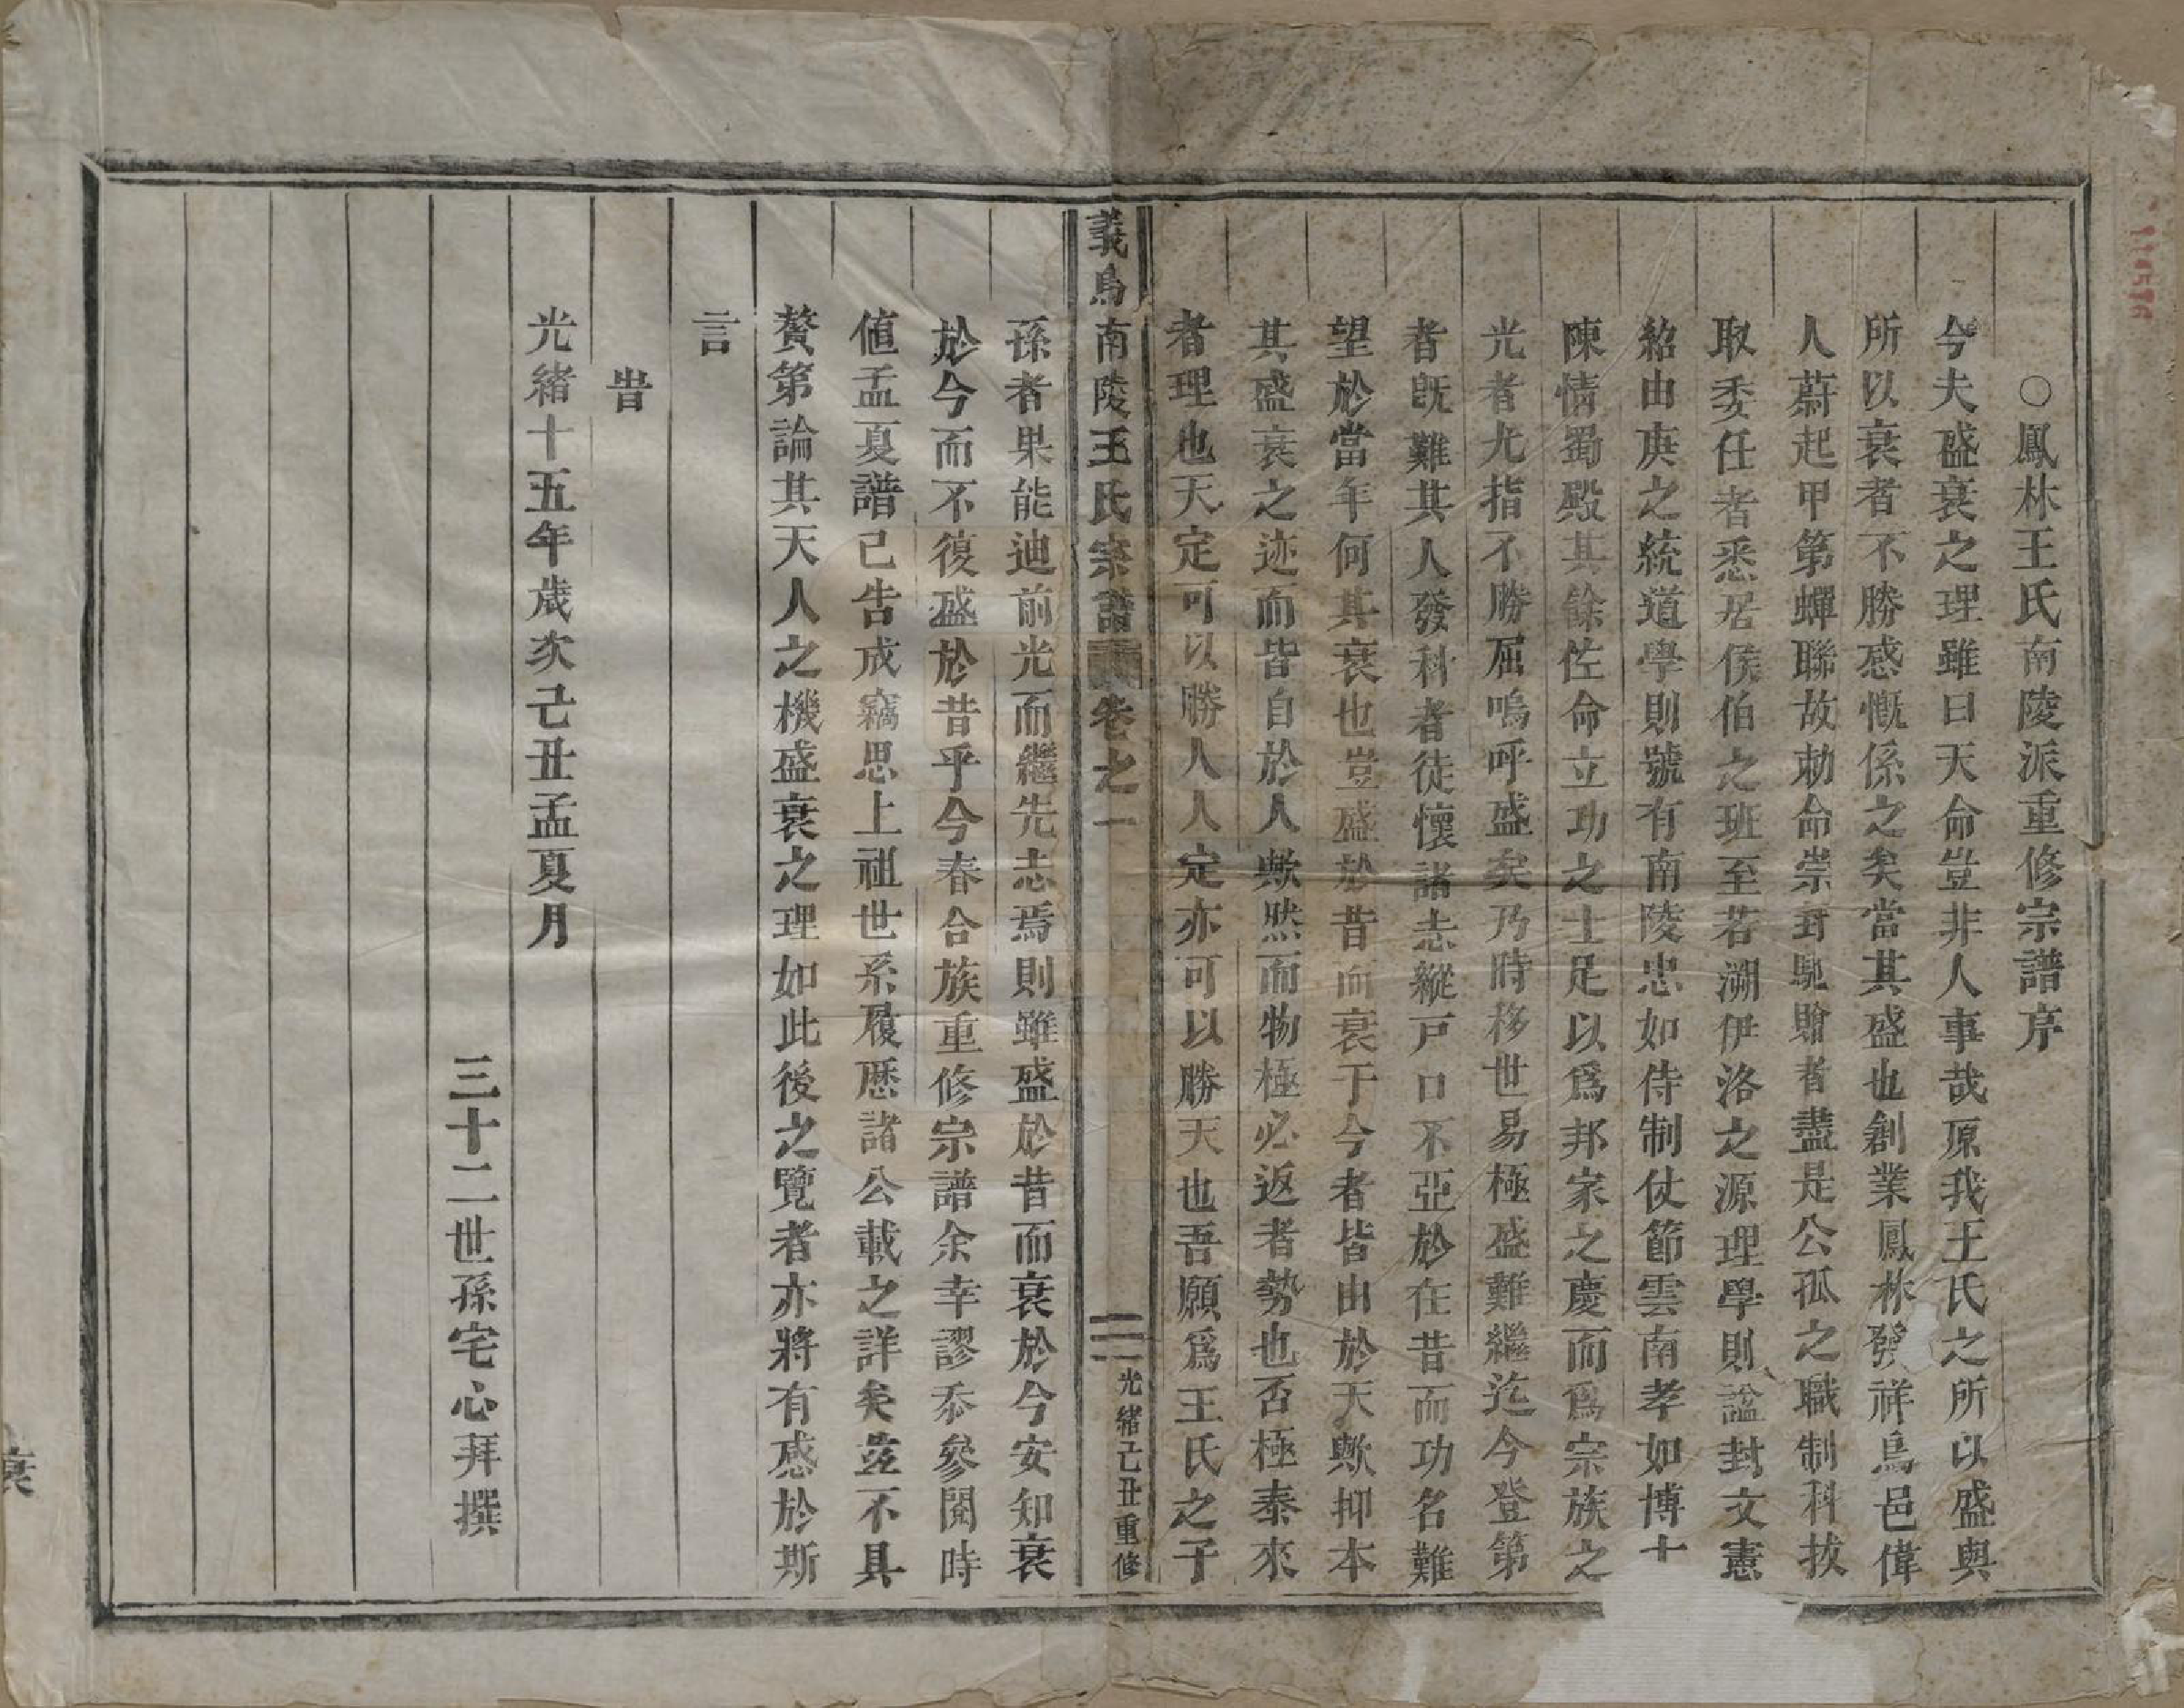 ○鳳林王氏南陵派重修宗譜序
今夫盛衰之理雖曰天命豈非人事哉原我王氏之所以盛與
所以衰者不勝感慨係之矣當其盛也創業鳳林發祥烏邑偉
人蔚起甲第蟬聯故勅命崇封馳贈者盡是公孤之職制科拔
取委任者悉居侯伯之班至若溯伊洛之源理學則諡封文憲
紹由庚之統道學則號有南陵忠如侍制仗節雲南孝如博士
陳情蜀殿其餘佐命立功之士足以爲邦家之慶而爲宗族之
光者尤指不勝屈嗚呼盛矣乃時移世易極盛難繼迄今登第
者既難其人發科者徒懷諸志縱戸口不亞於在昔而功名難
望於當年何其衰也豈盛於昔而衰于今者皆由於天歟抑本
其盛衰之迹而皆自於人歟然而物極必返者勢也否極泰來
者理也天定可以勝人人定亦可以勝天也吾願爲王氏之子
義烏南陵王氏宗譜 卷之一 三一 光緒己丑重修
孫者果能迪前光而繼先志焉則雖盛於昔而衰於今安知衰
於今而不復盛於昔乎今春合族重修宗譜余幸謬忝參閱時
值孟夏譜已告成竊思上祖世系履歷諸公載之詳矣茲不具
贅第論其天人之機盛衰之理如此後之覽者亦將有感於斯
言
旹
光緒十五年歲次己丑孟夏月
三十二世孫宅心拜撰
衰